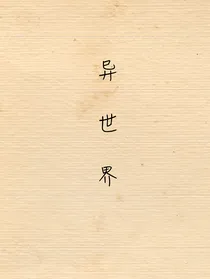 异世界